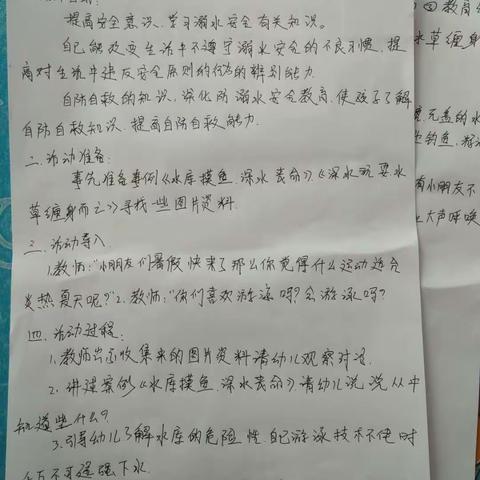 提高安全意识、学习溺水安全有关知识。
自己能改变生活中不遵守溺水安全的不良习惯，提
高对生活中违反安全原则的行为的辨别能力.
自防自救的知识，深化防溺水安全教育，使孩子了解
自防自救知识、提高自防自救能力.
二、活动准备:
事先准备事例《水库摸鱼.深水丧命》《深水玩耍水
草缠身而亡》寻找一些图片资料
三、活动导入.
1.教师:"小朋友们暑假快来了那么你觉得什么运动适合
炎热夏天呢?"2.教师:"你们喜欢游泳吗?会游泳吗?
四、活动过程:
1.教师出示收集来的图片资料请幼儿观察对话.
2.讲述案例《水库摸鱼.深水丧命》请幼儿说说从中
知道些什么?
3.引导幼儿了解水库的危险性自己游泳技术不佳时
千万不可逞强下水.
四教育
水草缠身
无盖的水
钓鱼.
有小朋友不
大声呼唤